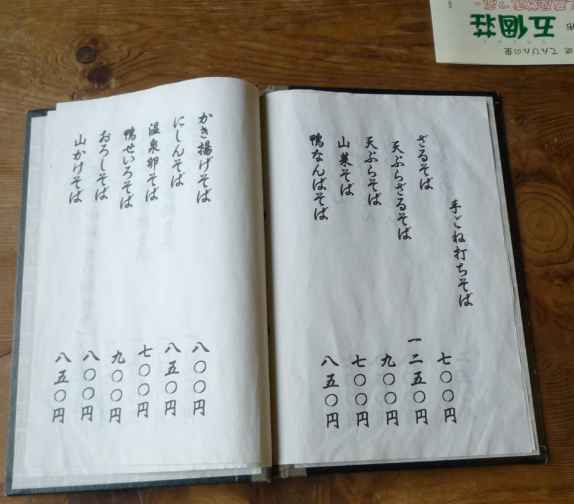 手ごね打ちそば
ざるそば 七〇〇円
天ぷらざるそば 一二五〇円
天ぷらそば 九〇〇円
山菜そば 七〇〇円
鴨なんばそば 八五〇円
かき揚げそば 八〇〇円
にしんそば 八五〇円
温泉卵そば 七〇〇円
鴨せいろそば 九〇〇円
おろしそば 八〇〇円
山かけそば 八五〇円
てんびんの里
五個荘